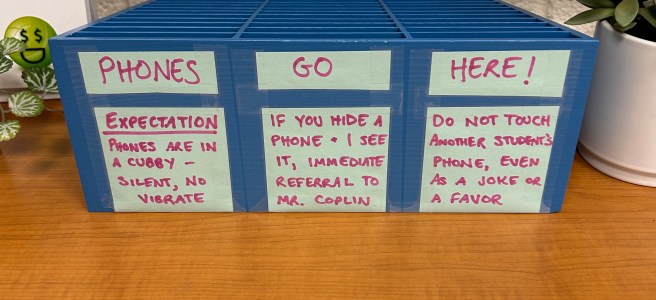 PHONES
GO
HERE!
EXPECTATION
PHONES ARE IN
A CUBBY -
SILENT, NO
VIBRATE
IF YOU HIDE A
PHONE + I SEE
IT, IMMEDIATE
REFERRAL TO
MR. COPLIN
DO NOT TOUCH
ANOTHER STUDENT'S
PHONE, EVEN
AS A JOKE OR
A FAVOR